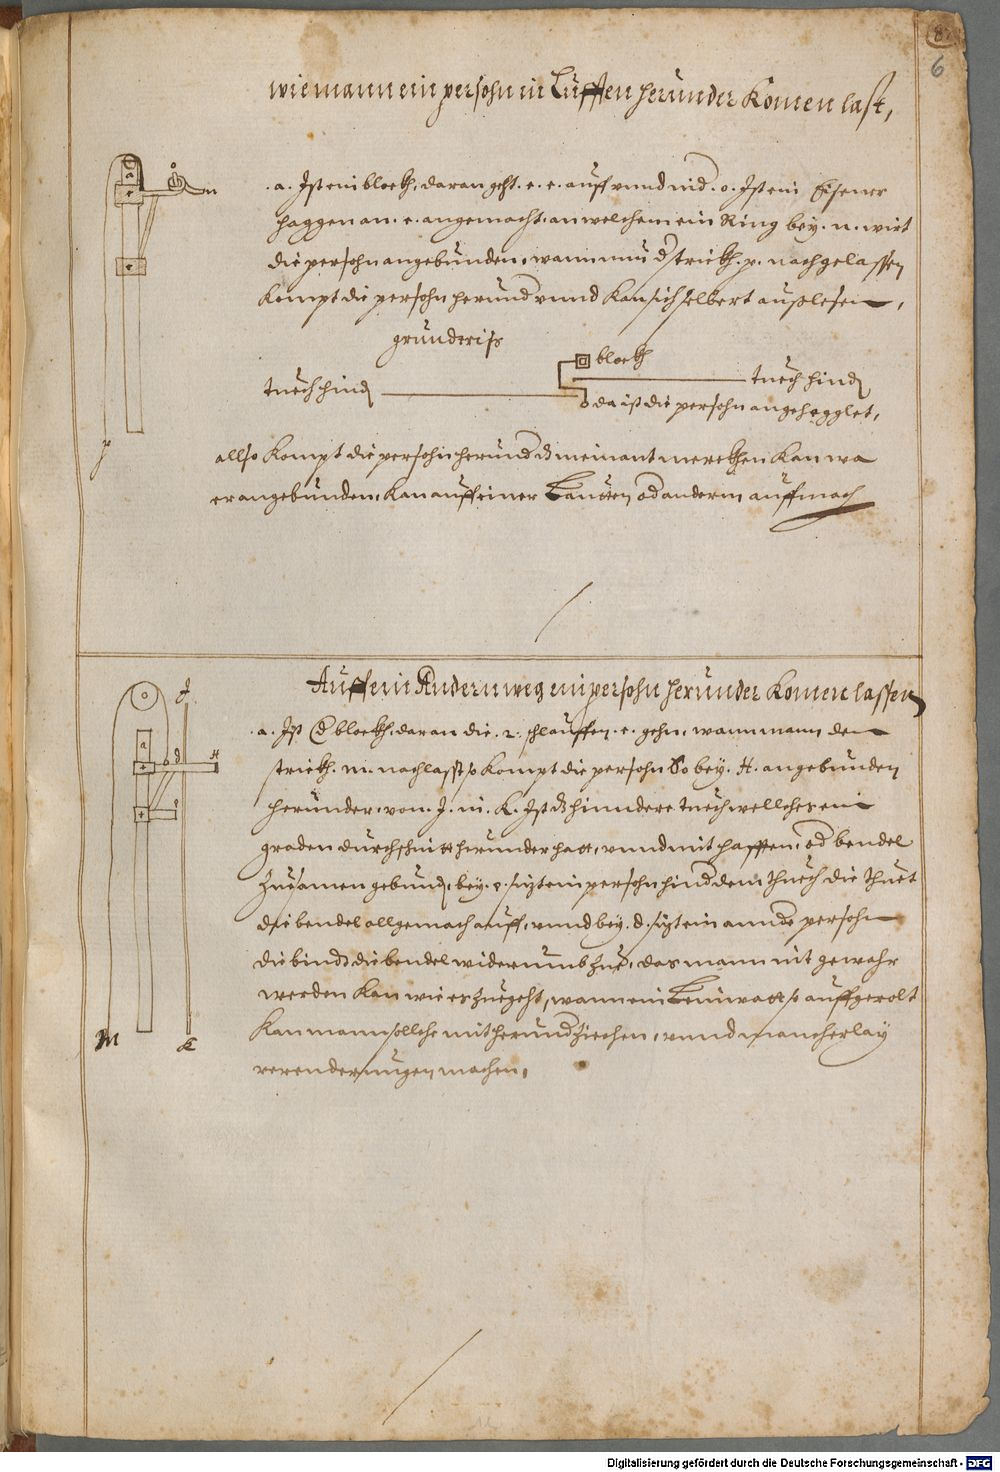 8.
6
wie mann ein persohn in Lufften herunder Komen last,
.a. Ist ein blockh, daran geht .e. e. auff vnnd nid. o. Ist ein Eisener
haggen an .e. angemacht. an welchem ein Ring bey .n. wirt
die persohn angebunden, wann nun d strickh .p. nachgelassen
Kompt die persohn herund vnnd Kan sich selbert außlesen,
grunderiss
blockh
tuech hind
tuech hind
da ist die persohn angehegglet,
allso Kompt die persohn herund dz niemant merckhen Kan wa
er angebunden, Kan auff einer od anderm auff mach
a
e
e
o
n
p
Auff ein Andern weg ein persohn herunder Komen lassen
.a. Ist d blockh, daran die .2. schlauffen .e. gehn, wann mann den
strickh .m. nachlasst so Kompt die persohn So bey .H. angebunden
herunder, von .J. in .K. Ist dz hinndere tuech wellches ein
graden durchschnitt herunder hatt, vnnd mit hafften, od bendel
zuesamen gebund, bey .e. sizt ein persohn hind dem thuech die thuet
die bendel allgemach auff, vnnd bey .d. sizt ein annde persohn
die bindt die bendel widerumb zue, das mann nit gewahr
werden Kan wie es zuegeht, wann ein Leinwatt so auffgerolt
Kan mann sollche mit herund ziechen, vnnd mancherlay
verenderungen machen,
J
a
d
H
e
M
K
Digitalisierung gefördert durch die Deutsche Forschungsgemeinschaft - DFG